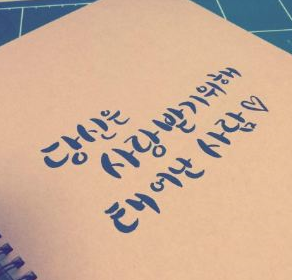 당신은
사랑받기위해
태어난 사람♡